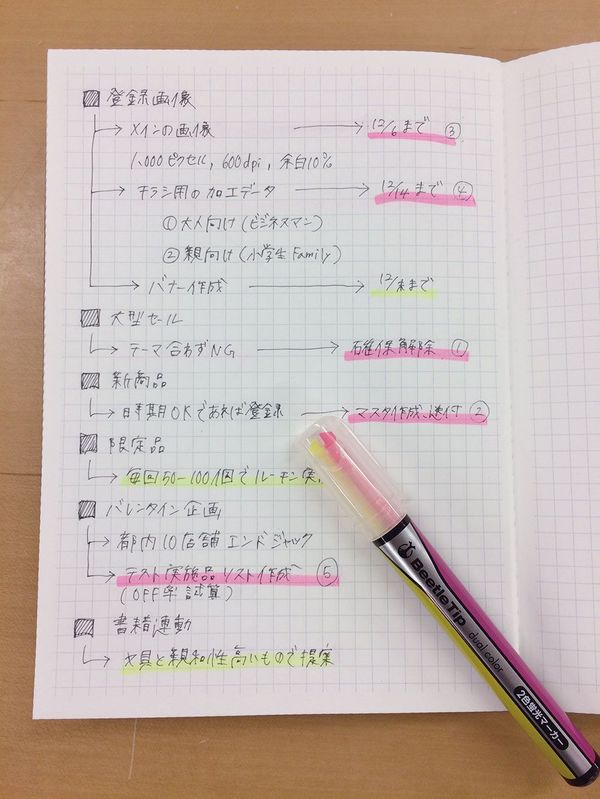 登録画像
メインの画像 12/6まで ③
1,000ピクセル, 600dpi, 余白10%
チラシ用の加工データ 12/14まで ④
① 大人向け(ビジネスマン)
② 親向け(小学生Family)
バナー作成 12/末まで
大型セール
テーマ合わずNG 確保解除 ①
新商品
時期OKであれば登録 マスタ作成、送付 ②
限定品
毎回50-100個でルーチン実
バレンタイン企画
都内10店舗エンドジャック
テスト実施品リスト作成 ⑤
(OFF率試算)
書籍連動
文具と親和性高いもので提案
BeetleTip
dual color
2色蛍光マーカー